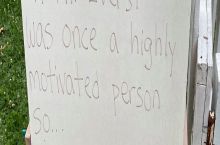 was once a highly
motivated person
so...